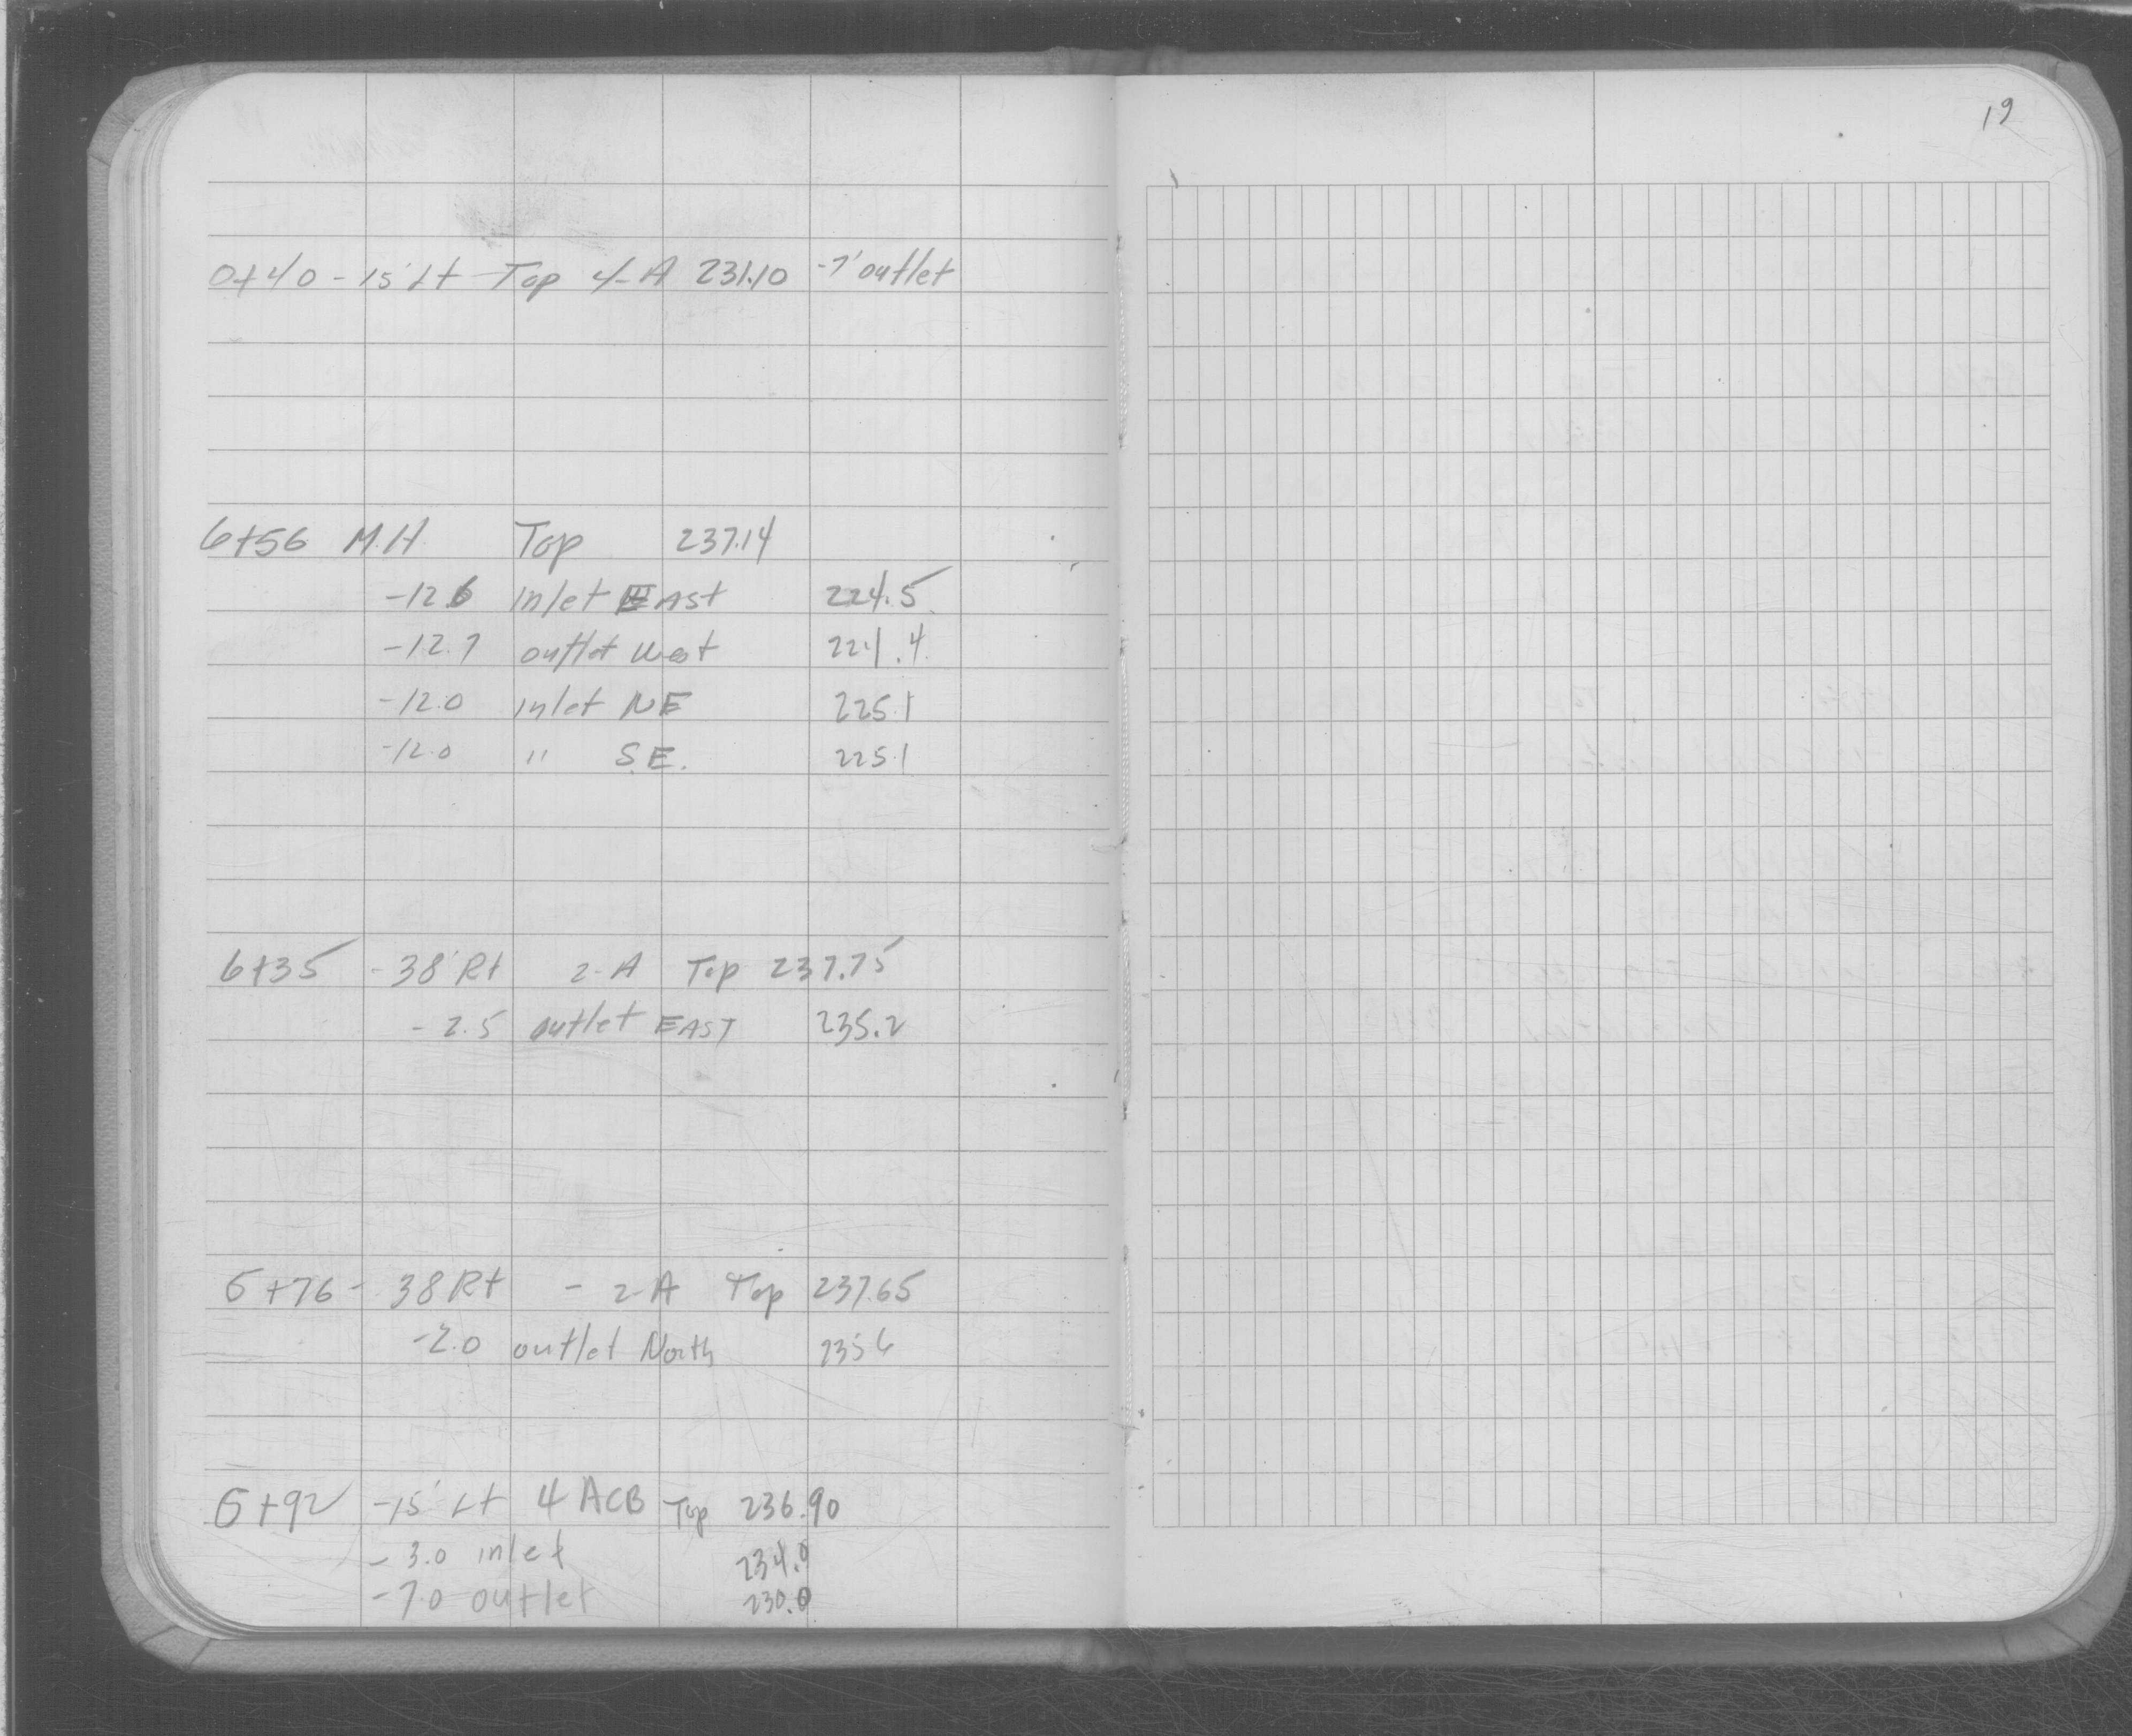 19
0+40 - 15' Lt Top 4-A 231.10 -7' outlet
6+56 M.H. Top 237.14
-12.6 inlet EAst 224.5
-12.7 outlet west 224.4
-12.0 inlet NE 225.1
-12.0 " S.E. 225.1
6+35 - 38' Rt 2-A Top 237.75
- 2.5 outlet EAST 235.2
6+76 - 38 Rt - 2-A Top 237.65
-2.0 outlet North 235.6
6+92 -15' Lt 4 ACB Top 236.90
- 3.0 inlet
-7.0 outlet